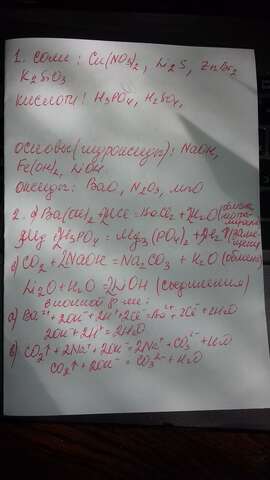 1. соли: Cu(NO₃)₂, Li₂S, ZnBr₂
K₂SiO₃
кислоты: H₃PO₄, H₂SO₄,
основы (гидроксиды): NaOH,
Fe(OH)₂, LiOH
оксиды: BaO, N₂O₃, MgO
2. а) Ba(OH)₂ + HCl = BaCl₂ + H₂O
Mg + H₃PO₄ = Mg₃(PO₄)₂ + H₂↑
CO₂ + 2NaOH = Na₂CO₃ + H₂O (обмена)
Li₂O + H₂O = 2LiOH (соединения)
в ионной
а) Ba²⁺ + 2OH⁻ + 2H⁺ + 2Cl⁻ = Ba²⁺ + 2Cl⁻ + 2H₂O
2OH⁻ + 2H⁺ = 2H₂O
в) CO₂↑ + 2Na⁺ + 2OH⁻ = 2Na⁺ + CO₃²⁻ + H₂O
CO₂↑ + 2OH⁻ = CO₃²⁻ + H₂O